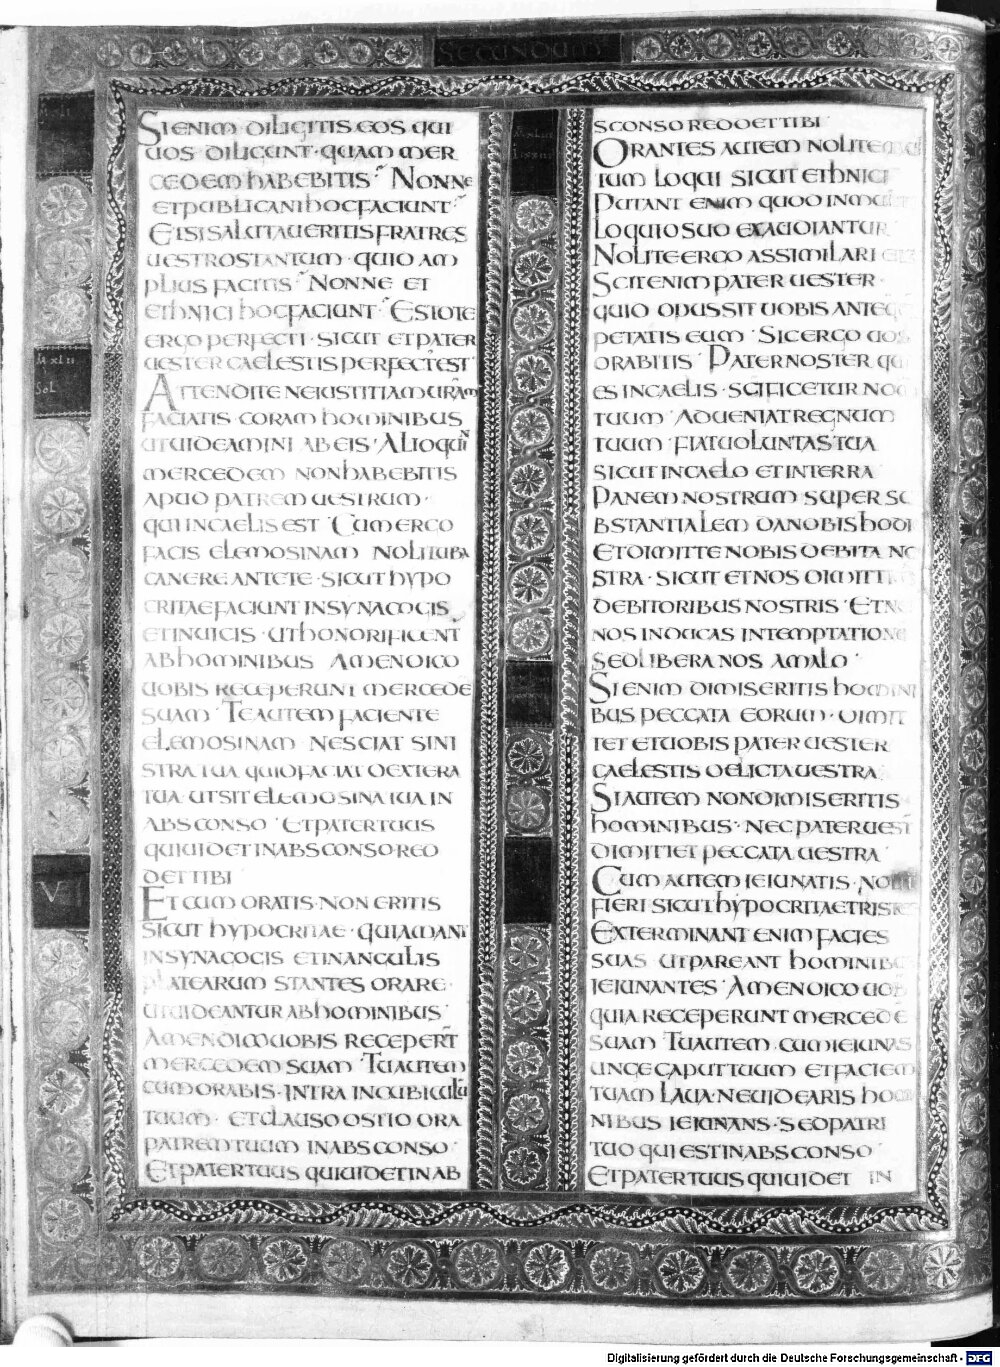 SECUNDUM
SI ENIM DILIGITIS EOS QUI
UOS DILIGUNT · QUAM MER
CEDEM HABEBITIS · NONNE
ET PUBLICANI HOC FACIUNT ·
ET SI SALUTAUERITIS FRATRES
UESTROS TANTUM · QUID AM
PLIUS FACITIS · NONNE ET
ETHNICI HOC FACIUNT · ESTOTE
ERGO PERFECTI · SICUT ET PATER
UESTER CAELESTIS PERFECT EST
ATTENDITE NE IUSTITIAM URAM
FACIATIS CORAM HOMINIBUS
UT UIDEAMINI AB EIS · ALIOQUI
MERCEDEM NON HABEBITIS
APUD PATREM UESTRUM ·
QUI IN CAELIS EST · CUM ERGO
FACIS ELEMOSINAM NOLI TUBA
CANERE ANTE TE · SICUT HYPO
CRITAE FACIUNT IN SYNAGOGIS
ET IN UICIS · UT HONORIFICENT
AB HOMINIBUS AMEN DICO
UOBIS RECEPERUNT MERCEDE
SUAM · TE AUTEM FACIENTE
ELEMOSINAM NESCIAT SINI
STRA TUA QUID FACIAT DEXTERA
TUA · UT SIT ELEMOSINA TUA IN
ABSCONSO · ET PATER TUUS
QUI UIDET IN ABSCONSO RED
DET TIBI
ET CUM ORATIS · NON ERITIS
SICUT HYPOCRITAE · QUI AMANT
IN SYNAGOGIS ET IN ANGULIS
PLATEARUM STANTES ORARE ·
UT UIDEANTUR AB HOMINIBUS ·
AMEN DICO UOBIS RECEPERT
MERCEDEM SUAM · TU AUTEM
CUM ORABIS · INTRA IN CUBICULU
TUUM · ET CLAUSO OSTIO ORA
PATREM TUUM IN ABSCONSO ·
ET PATER TUUS QUI UIDET IN AB
SCONSO REDDET TIBI
ORANTES AUTEM NOLITE
IUM LOQUI SICUT ETHNICI
PUTANT ENIM QUOD IN
LOQUIO SUO EXAUDIANTUR
NOLITE ERGO ASSIMILARI
SCIT ENIM PATER UESTER ·
QUID OPUS SIT UOBIS ANTE
PETATIS EUM · SIC ERGO UOS
ORABITIS · PATER NOSTER QUI
ES IN CAELIS · SCIFICETUR NO
TUUM · ADUENIAT REGNUM
TUUM · FIAT UOLUNTAS TUA
SICUT IN CAELO ET IN TERRA
PANEM NOSTRUM SUPER SU
BSTANTIALEM DA NOBIS HODI
ET DIMITTE NOBIS DEBITA NO
STRA · SICUT ET NOS DIMITTI
DEBITORIBUS NOSTRIS · ET NE
NOS INDUCAS IN TEMPTATIONE
SED LIBERA NOS A MALO ·
SI ENIM DIMISERITIS HOMINI
BUS PECCATA EORUM · DIMIT
TET ET UOBIS PATER UESTER
CAELESTIS DELICTA UESTRA
SI AUTEM NON DIMISERITIS
HOMINIBUS · NEC PATER UEST
DIMITTET PECCATA UESTRA
CUM AUTEM IEIUNATIS · NOLITE
FIERI SICUT HYPOCRITAE TRISTES
EXTERMINANT ENIM FACIES
SUAS · UT PAREANT HOMINIBUS
IEIUNANTES · AMEN DICO UOB
QUIA RECEPERUNT MERCEDE
SUAM · TU AUTEM · CUM IEIUNAS
UNGE CAPUT TUUM ET FACIEM
TUAM LAUA · NE UIDEARIS HOMI
NIBUS IEIUNANS · SED PATRI
TUO QUI EST IN ABSCONSO ·
ET PATER TUUS QUI UIDET IN
Digitalisierung gefördert durch die Deutsche Forschungsgemeinschaft - DFG